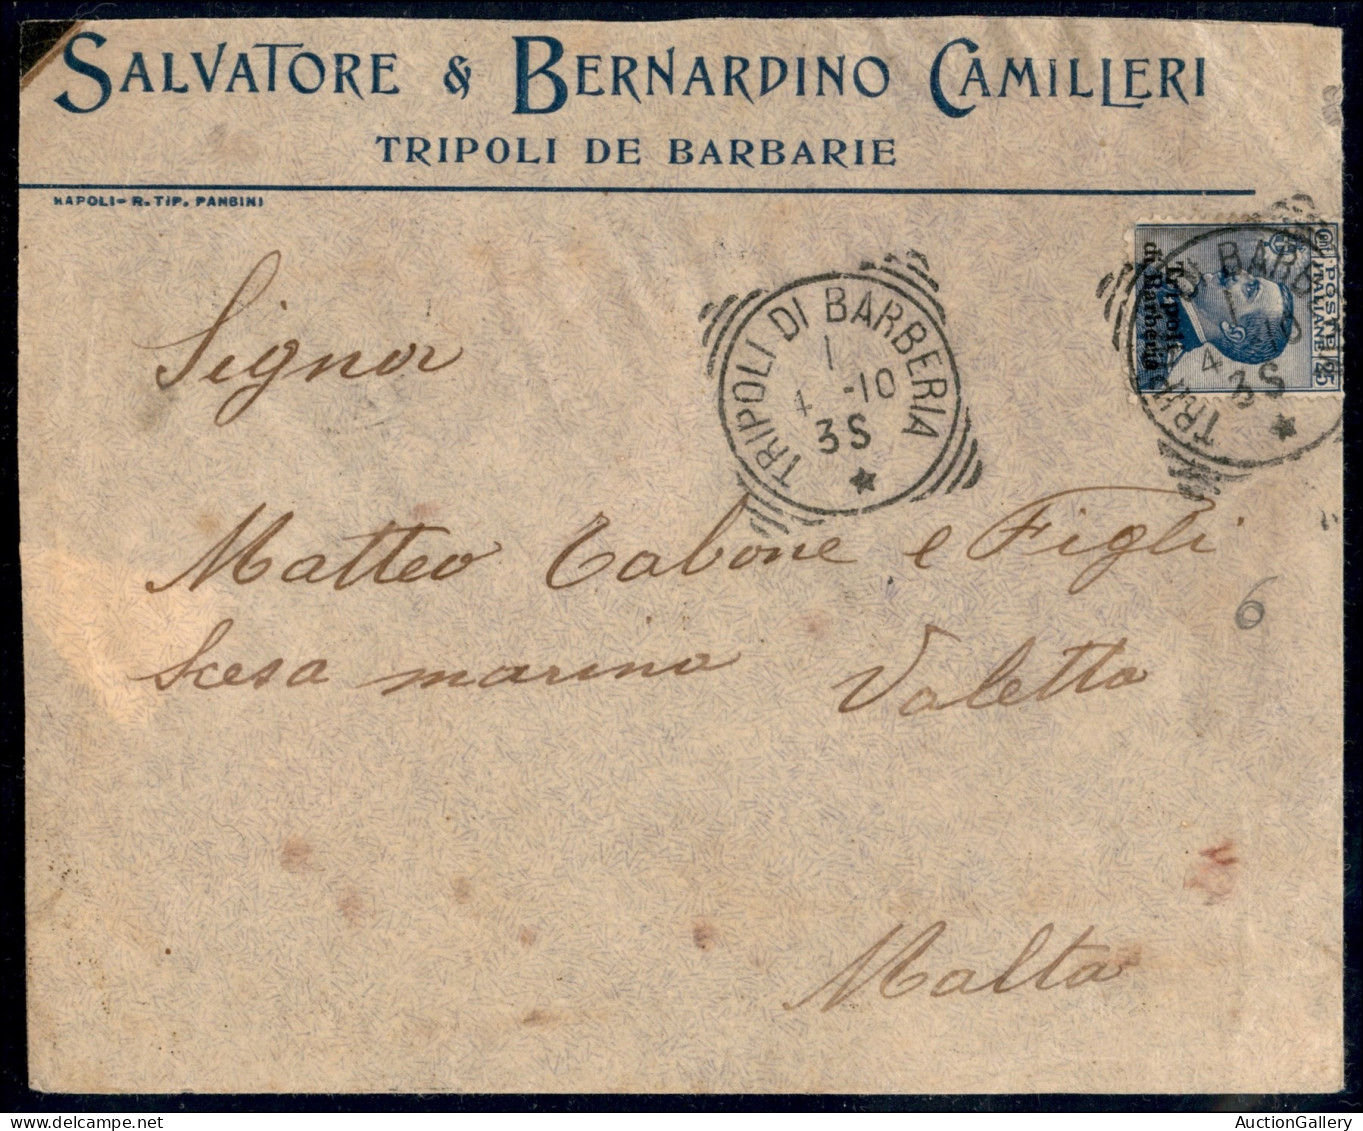 SALVATORE & BERNARDINO CAMILLERI
TRIPOLI DE BARBARIE
NAPOLI - R. TIP. PANSINI
POSTE ITALIANE
25
Tripoli
di Barberia
TRIPOLI DI BARBERIA
1
4 -10
3S
TRIPOLI DI BARB
1
4 10
3S
Signor
Matteo Cabone e Figli
Scesa marina Valetta
6
Malta
AuctionGallery